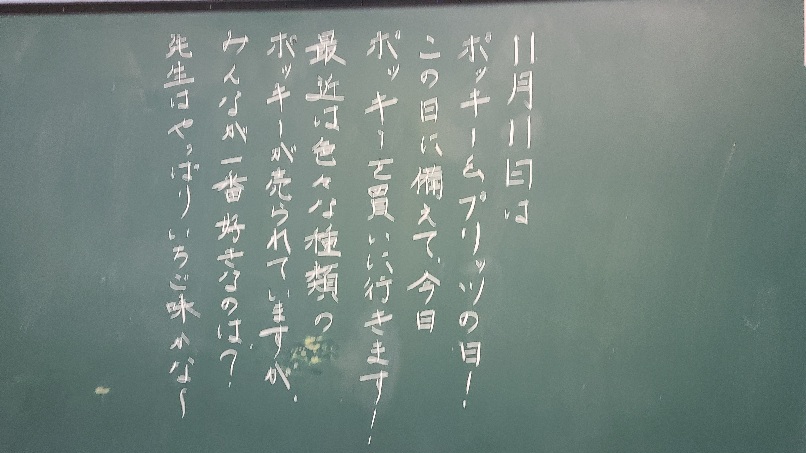 11月11日は
ポッキー&プリッツの日！
この日に備えて、今日
ポッキーを買いに行きます！
最近は色々な種類の
ポッキーが売られていますが、
みんなが一番好きなのは？
先生はやっぱりいちご味かな～